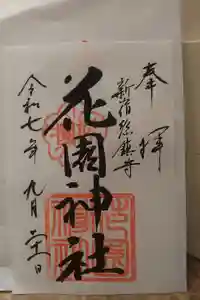 奉拝
新宿総鎮守
花園神社
令和七年九月 日